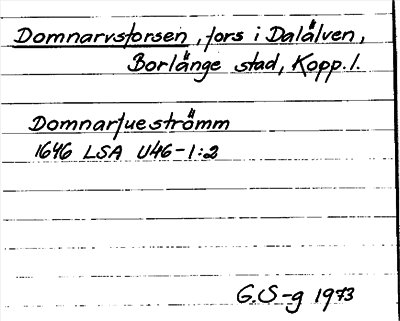 Domnarvsforsen, fors i Dalälven,
Borlänge stad, Kopp. l.
Domnarfueströmm
1646 LSA U46-1:2
G.S-g 1973